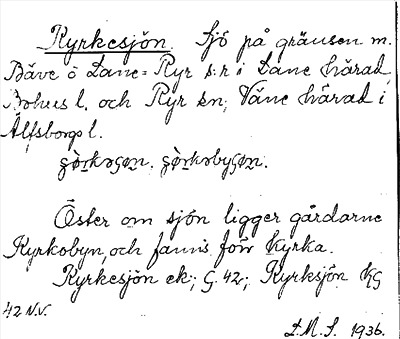 Kyrkesjön. Sjö på gränsen m.
Bäve o Lane-Ryr s:r i Lane härad
Bohus l. och Ryr sn, Väne härad i
Älfsborgs l.
Öster om sjön ligger gårdarne
Kyrkobyn, och fanns förr kyrka.
Kyrkesjön ek; G. 42; Kyrksjön KG
42 N.V.
I.M.S. 1936.